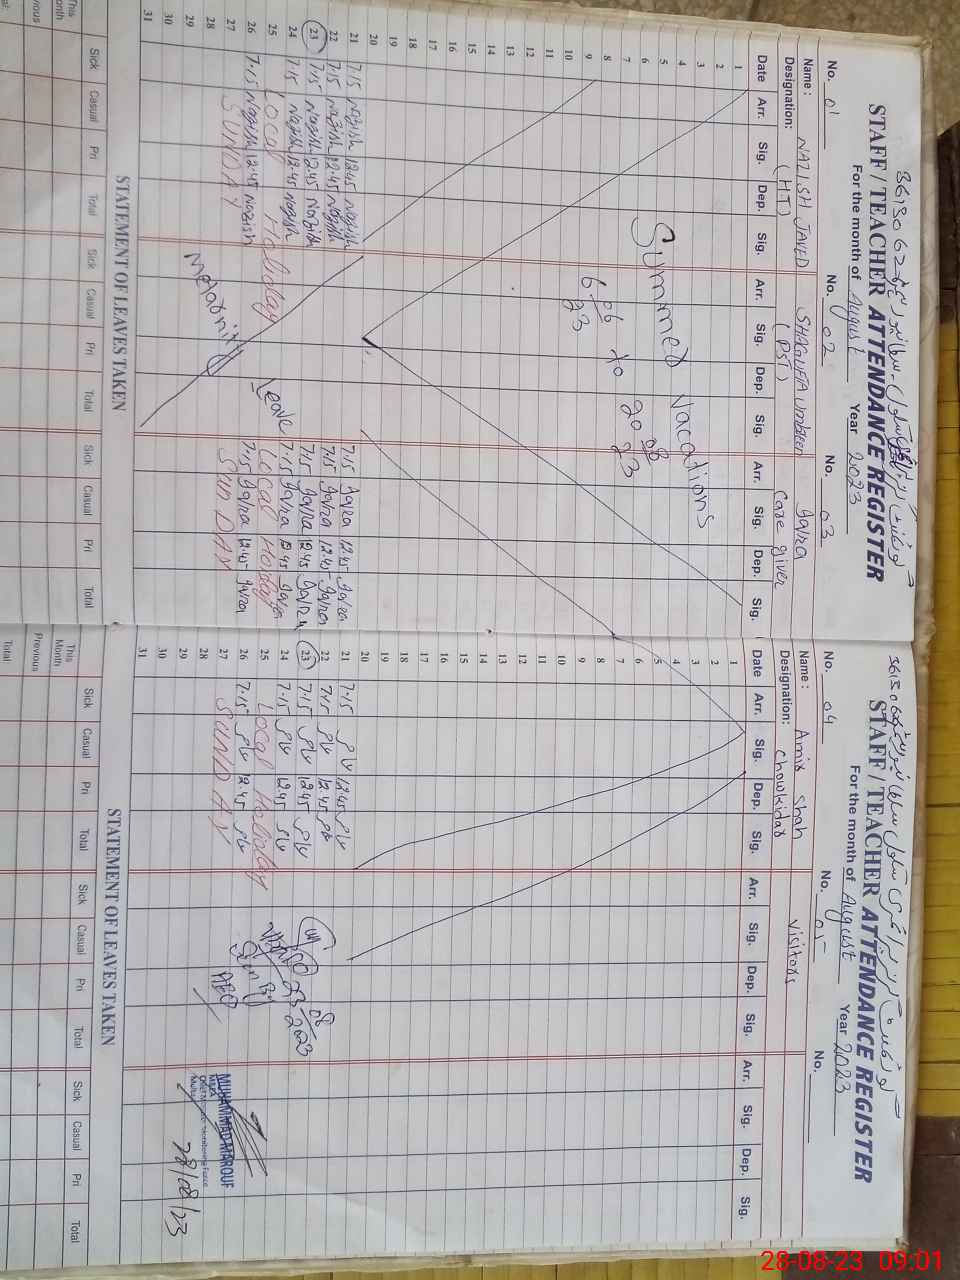 36130626
STAFF / TEACHER ATTENDANCE REGISTER
For the month of August Year 2023
No. 01 No. 02 No. 03
Name : NAZISH JAVED SHAGUFTA Umbreen Iqra
Designation: (HT) (PST) Care giver
Date Arr. Sig. Dep. Sig. Arr. Sig. Dep. Sig. Arr. Sig. Dep. Sig.
1
2
3
4
5
6
7
8
9
10
11
12
13
14
15
16
17
18
19
20
Summer Vacations
6 06 23 to 20 08 23
21 7.15 Nazish 12.45 Nazish 7.15 Iqra 12.45 Iqra
22 7.15 Nazish 12.45 Nazish 7.15 Iqra 12.45 Iqra
23 7.15 Nazish 12.45 Nazish 7.15 Iqra 12.45 Iqra
24 7.15 Nazish 12.45 Nazish 7.15 Iqra 12.45 Iqra
25 Local Holiday Local Holiday
26 7.15 Nazish 12.45 Nazish 7.15 Iqra 12.45 Iqra
27 SUNDAY SunDAY
28
29
30
31
Leave
STATEMENT OF LEAVES TAKEN
Sick Casual Pri Total Sick Casual Pri Total Sick Casual Pri Total
This Month
STAFF / TEACHER ATTENDANCE REGISTER
For the month of August Year 2023
No. 04 No. 05 No.
Name : Amir Shah Visitors
Designation: Chowkidar
Date Arr. Sig. Dep. Sig. Arr. Sig. Dep. Sig. Arr. Sig. Dep. Sig.
1
2
3
4
5
6
7
8
9
10
11
12
13
14
15
16
17
18
19
20
21 7.15 12.45
22 7.15 12.45
23 7.15 12.45
24 7.15 12.45
25 Local Holiday
26 7.15 12.45
27 SUNDAY
28
29
30
31
23 08 2023
Seen By
AEO
MUHAMMAD MAROUF
Monitoring Force
28/08/23
STATEMENT OF LEAVES TAKEN
Sick Casual Pri Total Sick Casual Pri Total Sick Casual Pri Total
This Month
Previous
Total
28-08-23 09:01